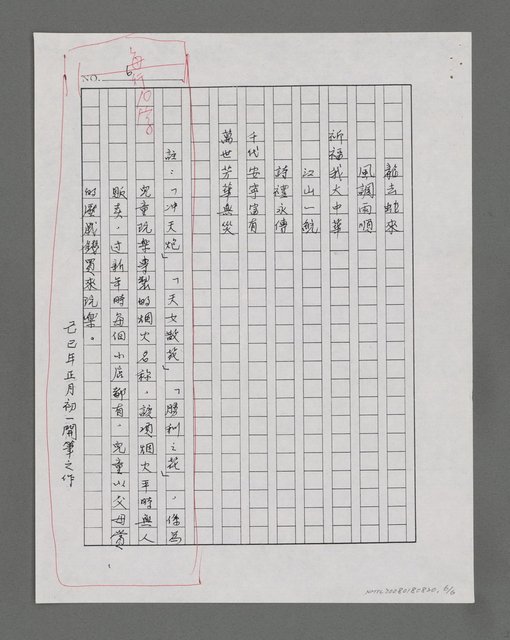 NO. 6
每行10字
龍去蛇來
風調雨順
祈福我大中華
江山一統
詩禮永傳
千代安寧富有
萬世芳華無災
註：「冲天炮」「天女散花」「勝利之花」，係爲
兒童玩樂專製的烟火名称，該項烟火平時無人
販卖，过新年時每個小店都有，兒童以父母賞
的壓歲錢買來玩樂。
己巳年正月初一開筆之作
NMTL20080180820, 6/6